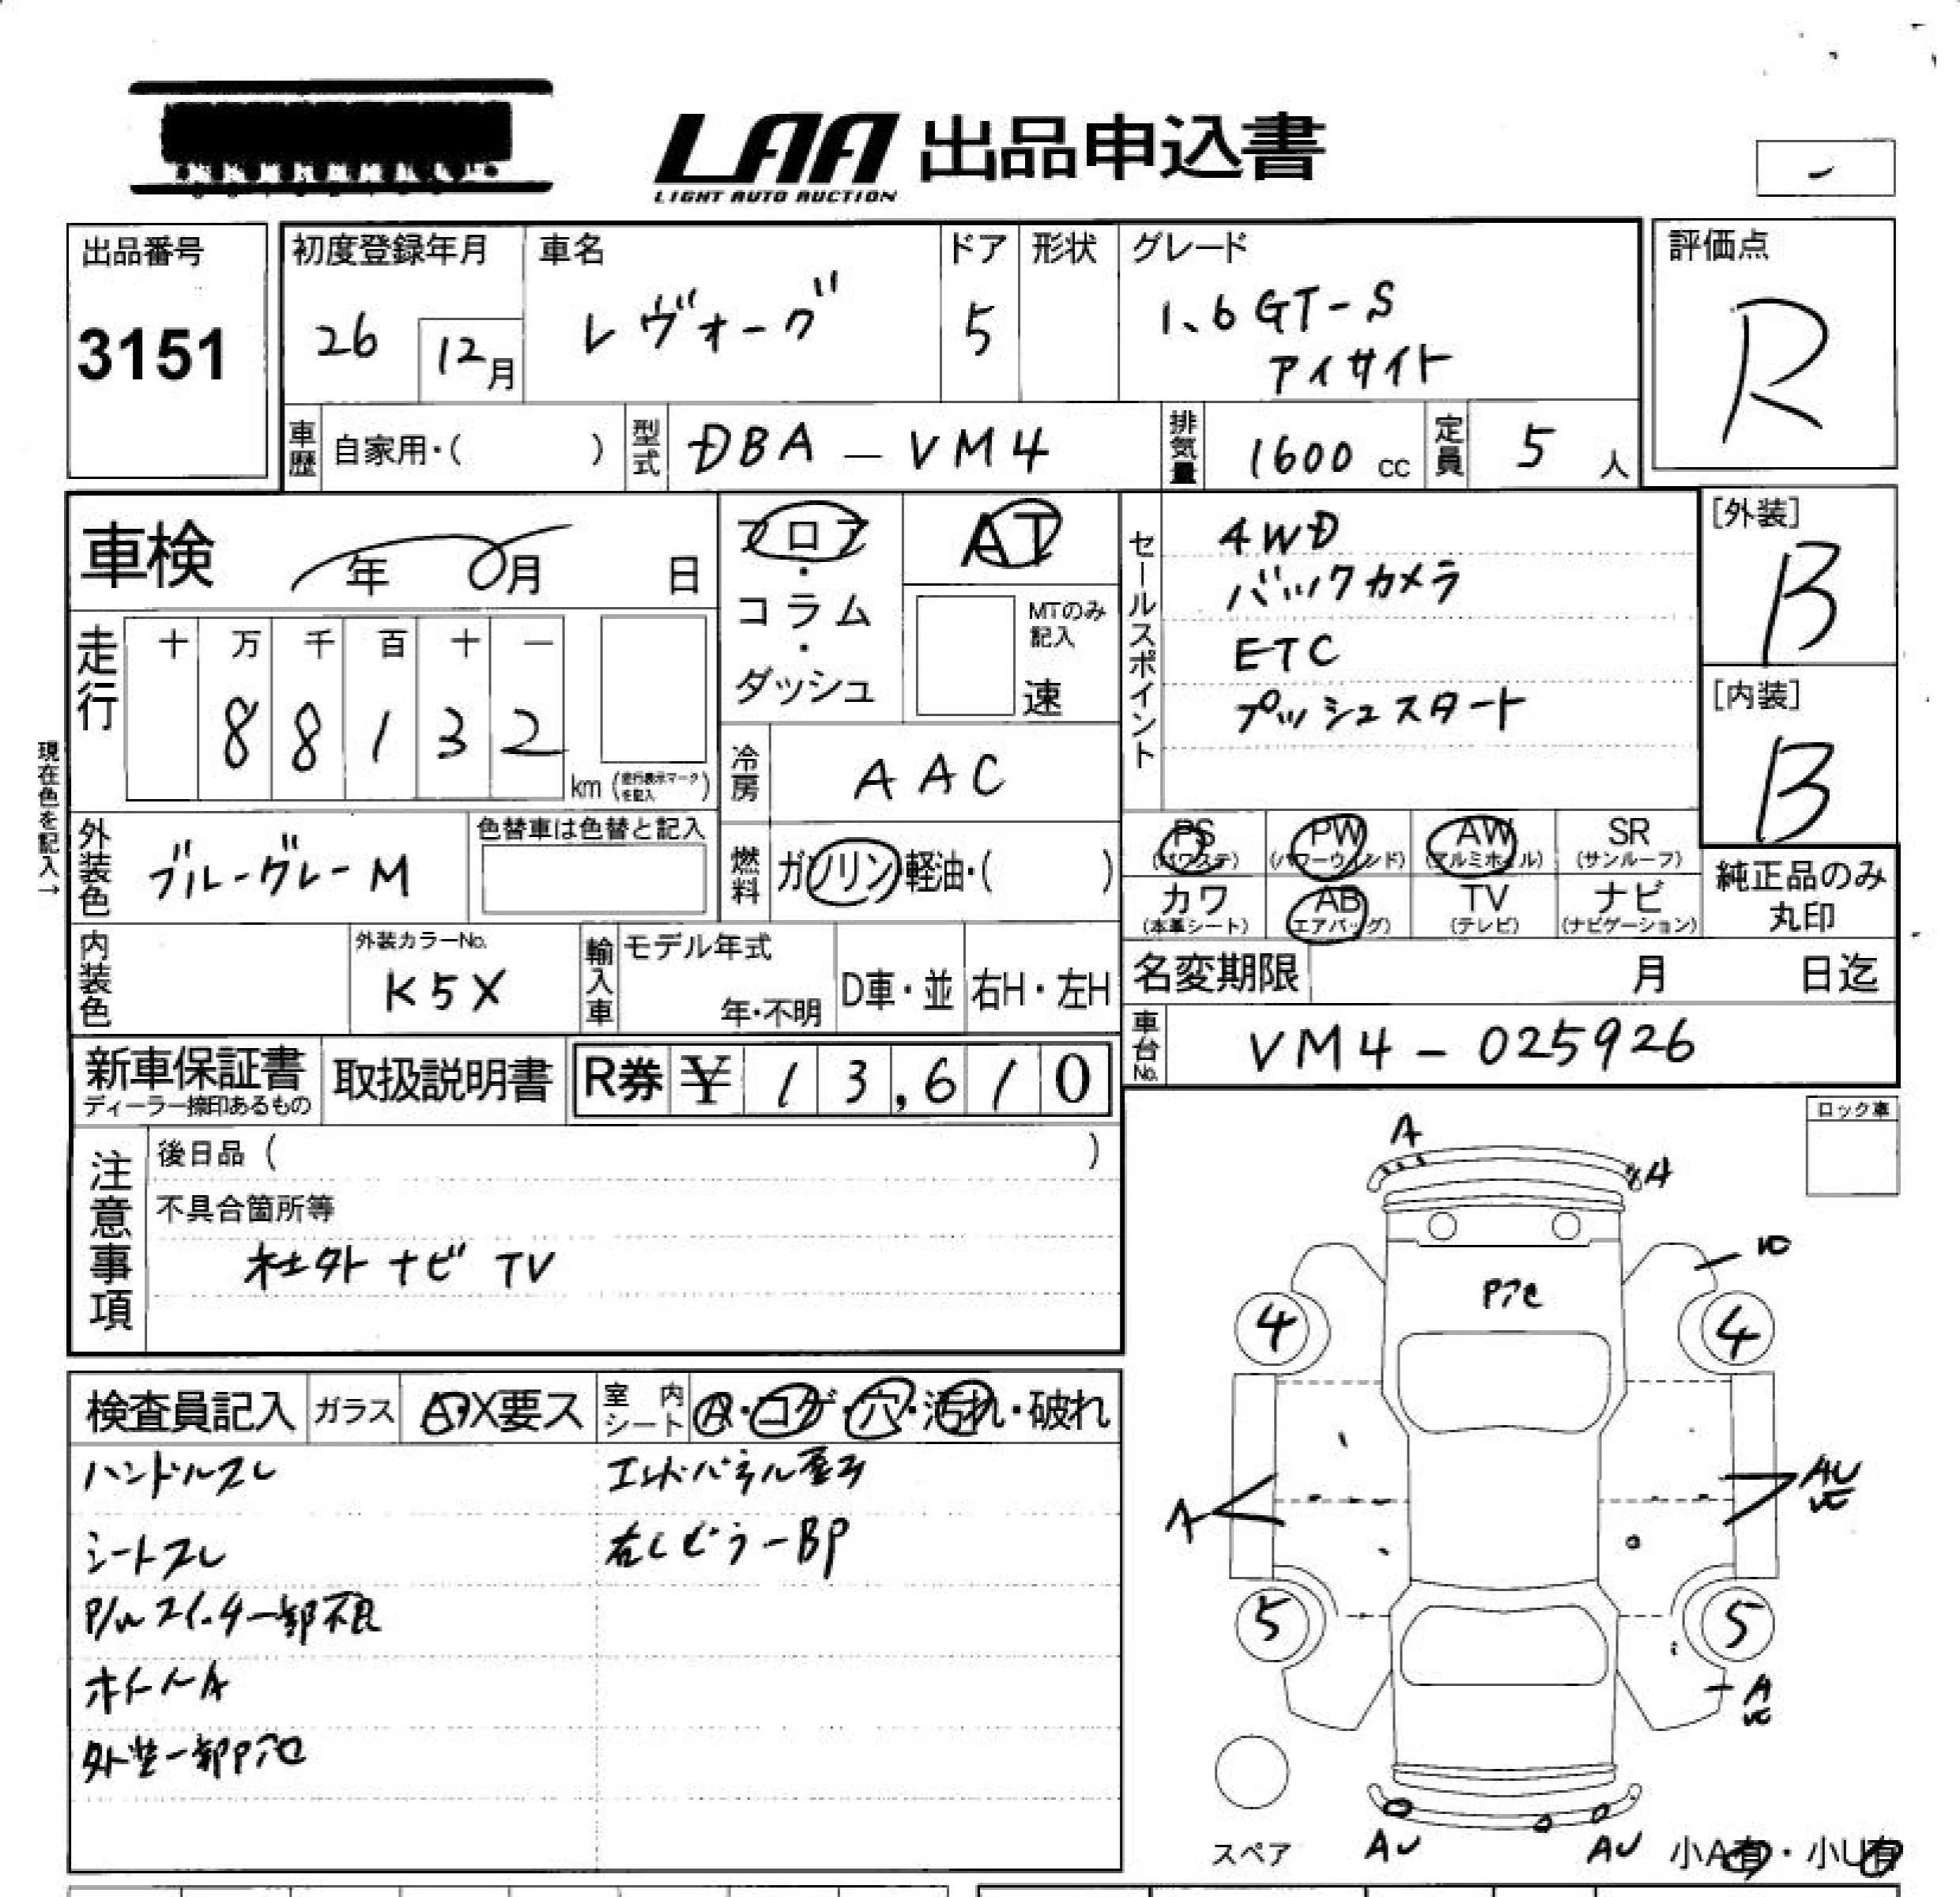 LAA 出品申込書
LIGHT AUTO AUCTION
出品番号
3151
初度登録年月
26 12月
車名
レヴォーグ
ドア
5
形状
グレード
1.6GT-S
アイサイト
評価点
R
車歴 自家用・( )
型式 DBA-VM4
排気量 1600 cc
定員 5 人
車検 年 月 日
フロア・コラム・ダッシュ
AT
MTのみ記入
速
セールスポイント
4WD
バックカメラ
ETC
プッシュスタート
[外装]
B
[内装]
B
走行
十 万 千 百 十 一
8 8 1 3 2
km (走行表示マークを記入)
現在色を記入→
冷房 AAC
外装色 ブルーグレーM
色替車は色替と記入
燃料 ガソリン 軽油・( )
PS (パワステ) PW (パワーウィンド) AW (アルミホイル) SR (サンルーフ)
カワ (本革シート) AB (エアバッグ) TV (テレビ) ナビ (ナビゲーション)
純正品のみ
丸印
内装色
外装カラーNo.
K5X
輸入車
モデル年式
年・不明
D車・並 右H・左H
名変期限 月 日迄
車台No. VM4-025926
新車保証書
ディーラー捺印あるもの
取扱説明書
R券 ¥ 13,610
注意事項
後日品 ( )
不具合箇所等
社外ナビ TV
ロック車
検査員記入
ガラス
X要ス
室内シート
・コゲ・穴・汚れ・破れ
ハンドルスレ
シートスレ
P/Wスイッチ一部不良
ホイールA
外装一部P
エンドパネル歪み
右しピラーBP
A
A
4
4
A
AU
5
5
A
AU
AU
スペア
小A有・小U有